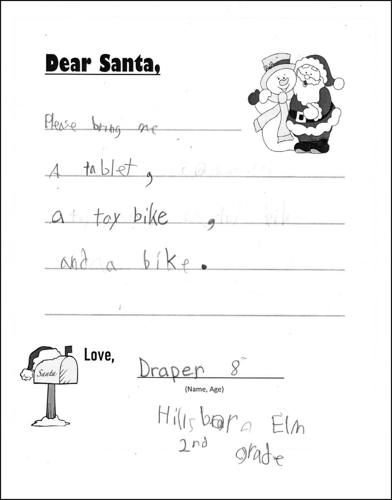 Dear Santa,
Please bring me
A tablet,
a toy bike,
and a bike.
Santa
Love,
Draper 8
(Name, Age)
Hillsboro Elm
2nd grade